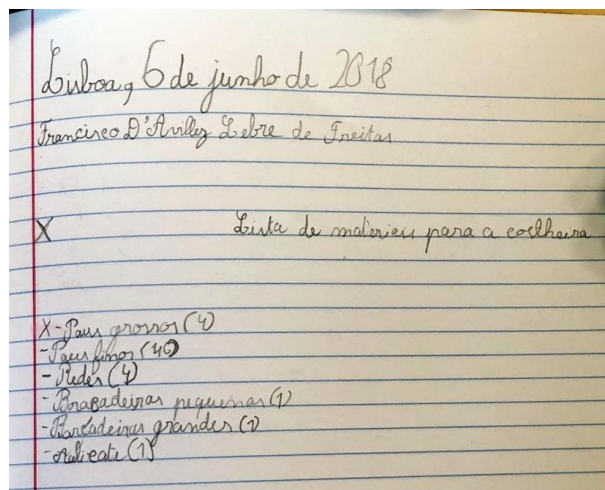 Lisboa, 6 de junho de 2018
Francisco D'Avillez Lebre de Freitas
X Lista de materiais para a coelheira
X-Paus grossos (4)
-Paus finos (40)
-Redes (4)
-Braçadeiras pequenas (1)
-Barçadeiras grandes (1)
-Alicate (1)